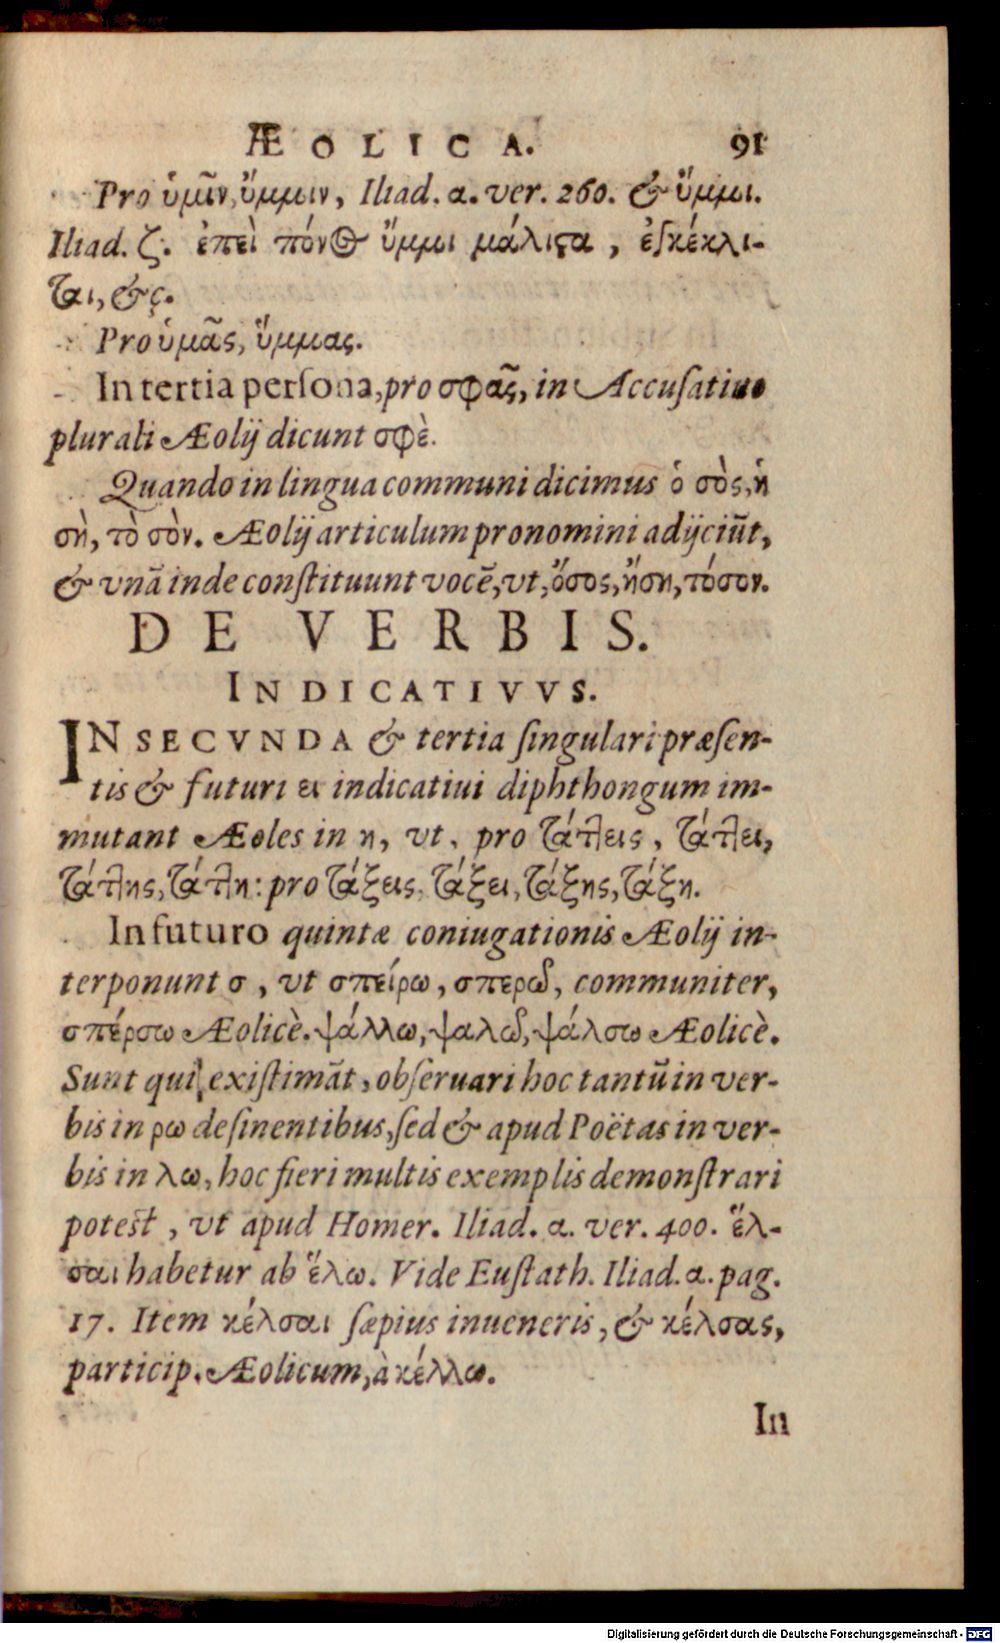 ÆOLICA. 91
Pro ὑμῖν, ὔμμιν, Iliad. α. ver. 260. & ὔμμι.
Iliad. ζ. ἐπεὶ πόνος ὔμμι μάλιϛα, ἐςκέκλι-
ται, &c.
Pro ὑμᾶς, ὔμμας.
In tertia perſona, pro σφᾶς, in Accuſatiuo
plurali Æolij dicunt σφὲ.
Quando in lingua communi dicimus ὁ σὸς, ἡ
σὴ, τὸ σὸν. Æolij articulum pronomini adijciũt,
& vnã inde conſtituunt vocẽ, vt, ὅσος, ἥση, τόσον.
DE VERBIS.
INDICATIVVS.
IN SECVNDA & tertia ſingulari præſen-
tis & futuri ει indicatiui diphthongum im-
mutant Æoles in η, vt, pro τάτλεις, τάτλει,
τάτλης, τάτλη: pro τάξεις, τάξει, τάξης, τάξη.
In futuro quintæ coniugationis Æolij in-
terponunt σ, vt σπείρω, σπερῶ, communiter,
σπέρσω Æolicè. ψάλλω, ψαλῶ, ψάλσω Æolicè.
Sunt qui exiſtimãt, obſeruari hoc tantũ in ver-
bis in ρω deſinentibus, ſed & apud Poëtas in ver-
bis in λω, hoc fieri multis exemplis demonſtrari
poteſt, vt apud Homer. Iliad. α. ver. 400. ἔλ-
σαι habetur ab ἔλω. Vide Euſtath. Iliad. α. pag.
17. Item κέλσαι ſæpius inueneris, & κέλσας,
particip. Æolicum, à κέλλω.
In
Digitalisierung gefördert durch die Deutsche Forschungsgemeinschaft - DFG